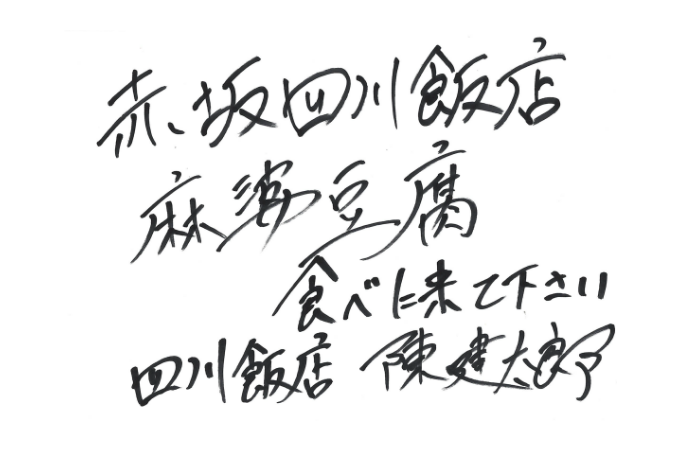 赤坂四川飯店
麻婆豆腐
食べに来て下さい
四川飯店 陳建太郎